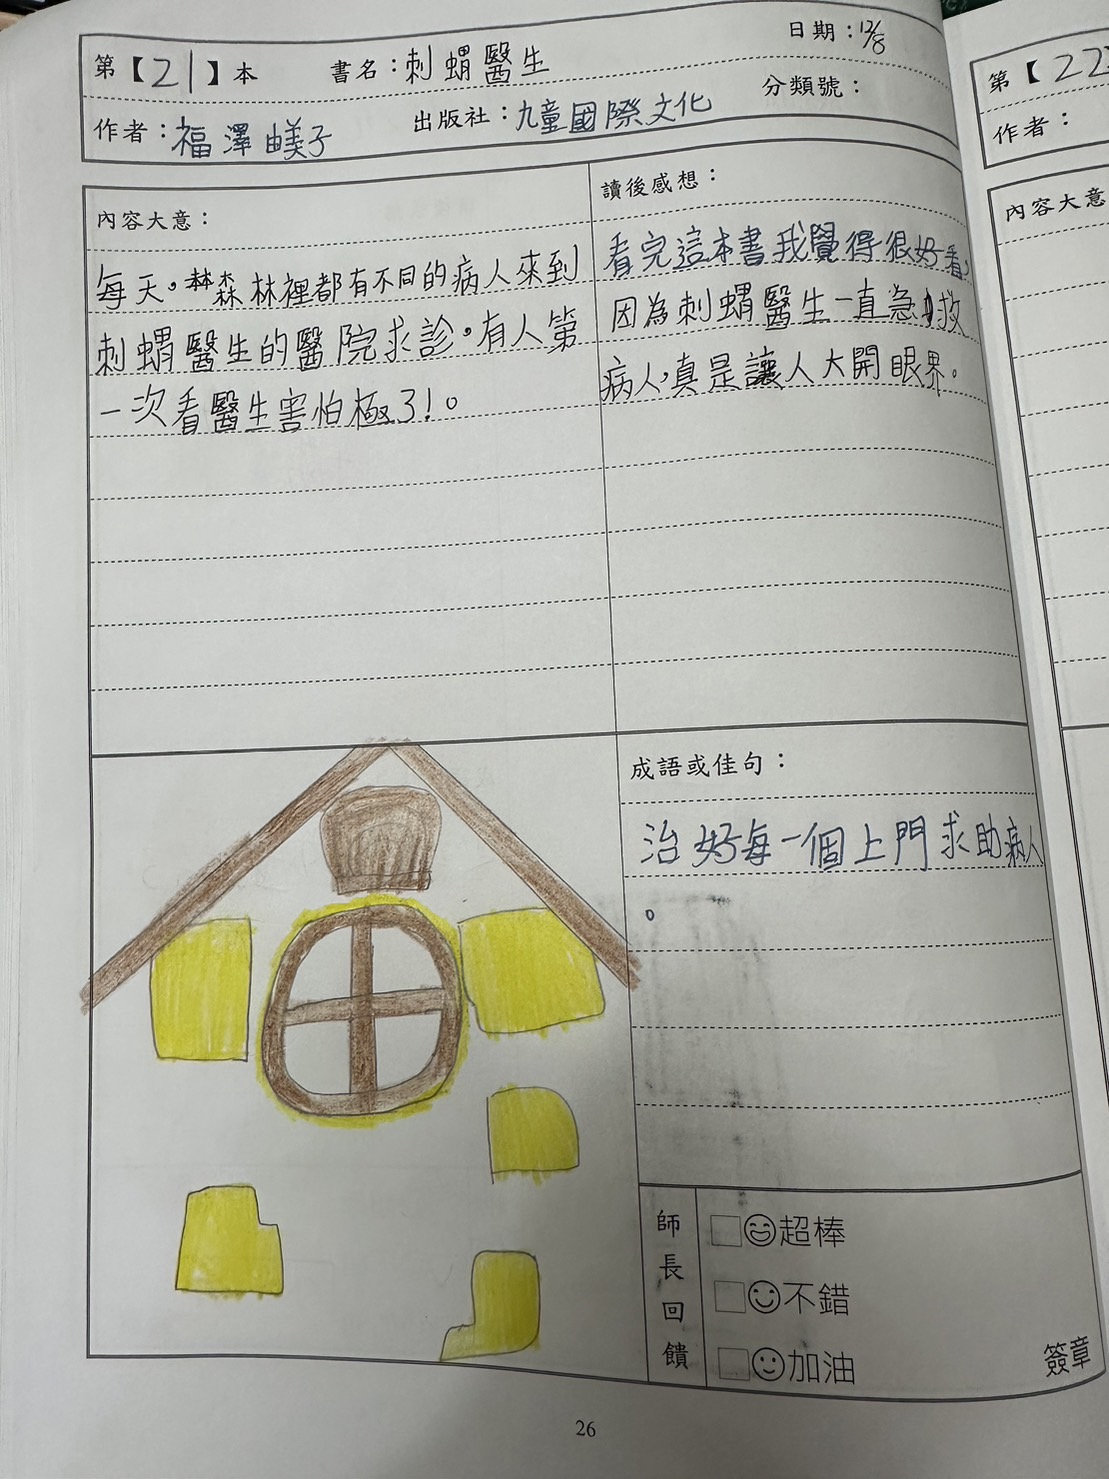 第【21】本 書名：刺蝟醫生 日期：12/8
作者：福澤由美子 出版社：九童國際文化 分類號：
內容大意：
每天。森林裡都有不同的病人來到
刺蝟醫生的醫院求診。有人第
一次看醫生害怕極了!。
讀後感想：
看完這本書我覺得很好看，
因為刺蝟醫生一直急救
病人，真是讓人大開眼界。
成語或佳句：
治好每一個上門求助病人
。
師長回饋
超棒
不錯
加油
簽章
26
第【22
作者：
內容大意